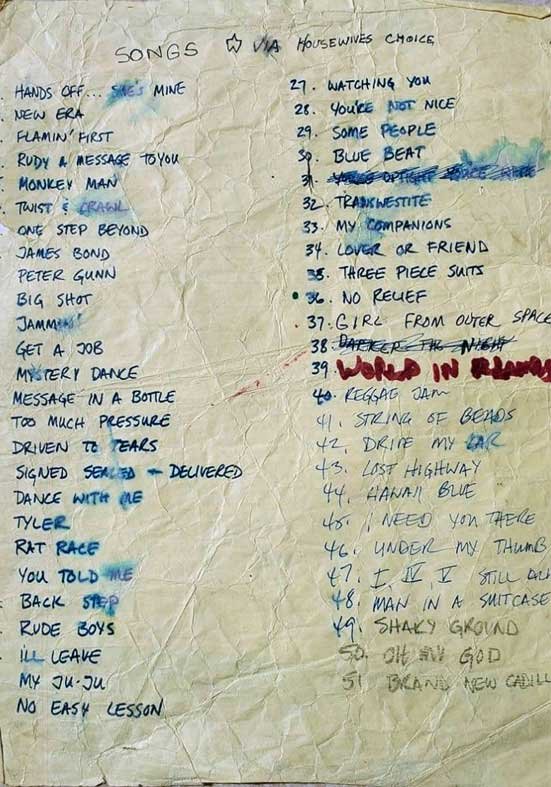 SONGS ☆ VIA HOUSEWIVES CHOICE
HANDS OFF... SHE'S MINE
NEW ERA
FLAMIN' FIRST
RUDY A MESSAGE TO YOU
MONKEY MAN
TWIST & CRAWL
ONE STEP BEYOND
JAMES BOND
PETER GUNN
BIG SHOT
JAMMIN'
GET A JOB
MYSTERY DANCE
MESSAGE IN A BOTTLE
TOO MUCH PRESSURE
DRIVEN TO TEARS
SIGNED SEALED + DELIVERED
DANCE WITH ME
TYLER
RAT RACE
YOU TOLD ME
BACK STEP
RUDE BOYS
ILL LEAVE
MY JU-JU
NO EASY LESSON
27. WATCHING YOU
28. YOU'RE NOT NICE
29. SOME PEOPLE
30. BLUE BEAT
31.
32. TRANSVESTITE
33. MY COMPANIONS
34. LOVER OR FRIEND
35. THREE PIECE SUITS
36. NO RELIEF
37. GIRL FROM OUTER SPACE
38 DARKER THE NIGHT
39. WORLD IN FLAMES
40. REGGAE JAM
41. STRING OF BEADS
42. DRIVE MY CAR
43. LOST HIGHWAY
44. HAWAII BLUE
45. I NEED YOU THERE
46. UNDER MY THUMB
47. I IV V STILL
48. MAN IN A SUITCASE
49. SHAKY GROUND
50. OH MY GOD
51 BRAND NEW CADILL